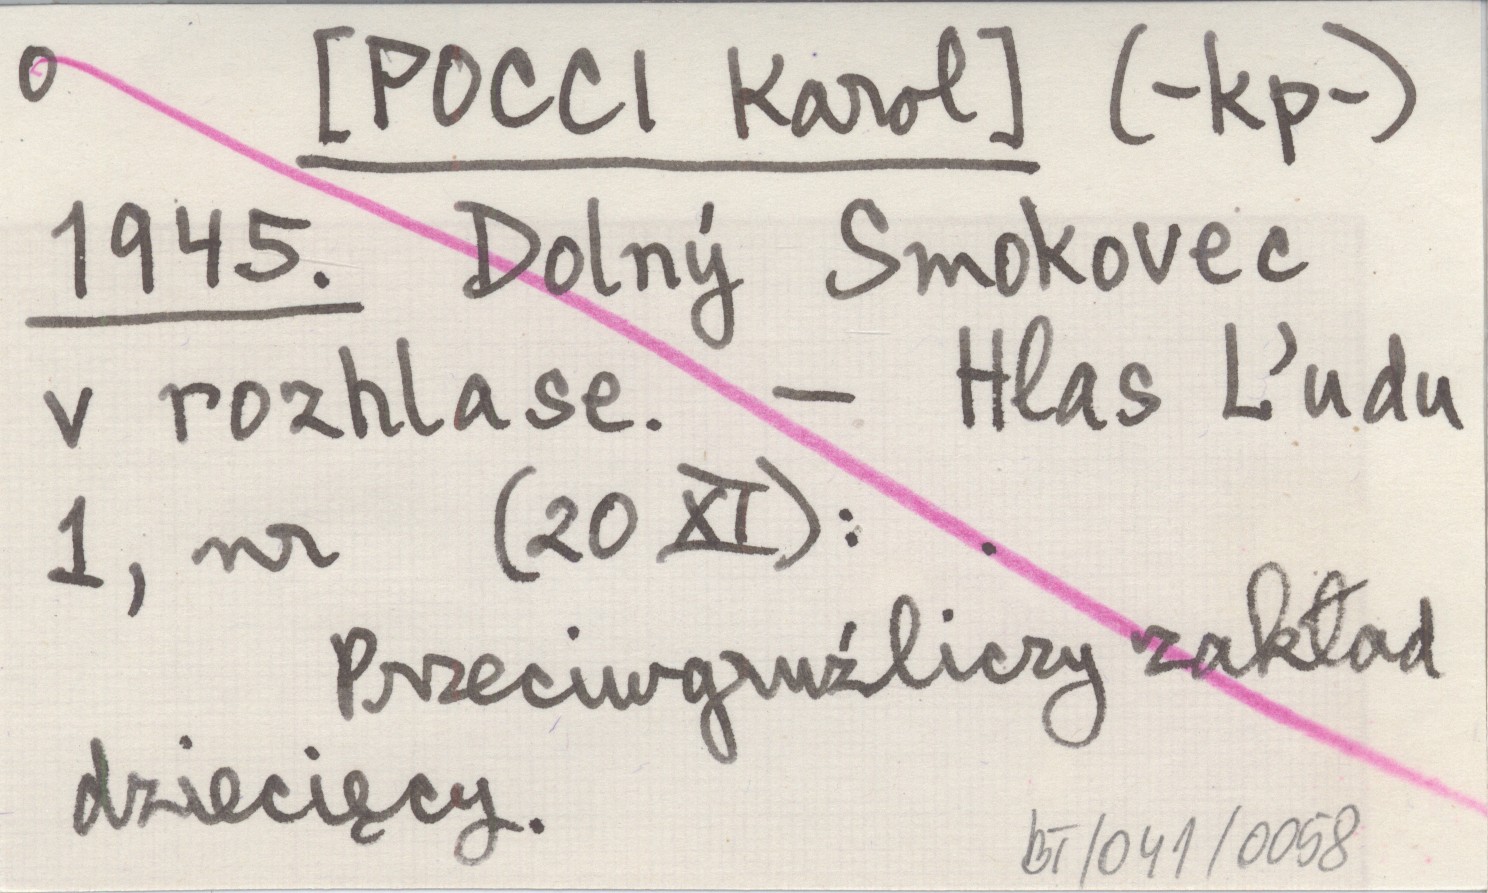 o [POCCI Karol] (-kp-)
1945. Dolný Smokovec
v rozhlase. – Hlas Ľudu
1, nr (20 XI):
Przeciwgruźliczy zakład
dziecięcy.
BT/041/0058